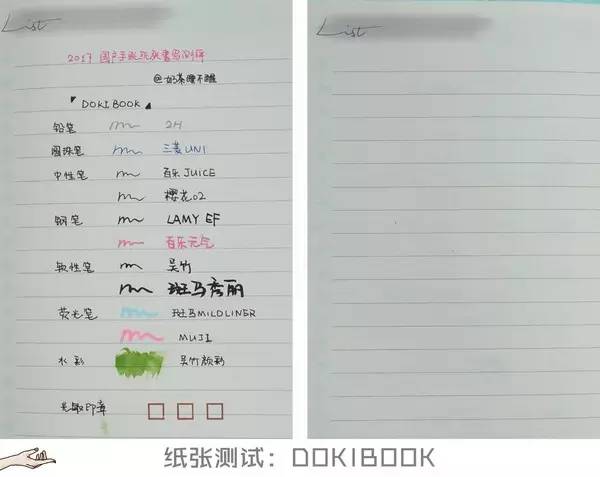 List
2017 国产手账纸张书写测评
@奶茶睡不醒
DOKIBOOK
铅笔 2H
圆珠笔 三菱UNI
中性笔 百乐JUICE
樱花02
钢笔 LAMY EF
百乐元气
软性笔 吴竹
斑马秀丽
荧光笔 斑马MILDLINER
MUJI
水彩 吴竹颜彩
光敏印章
List
纸张测试：DOKIBOOK